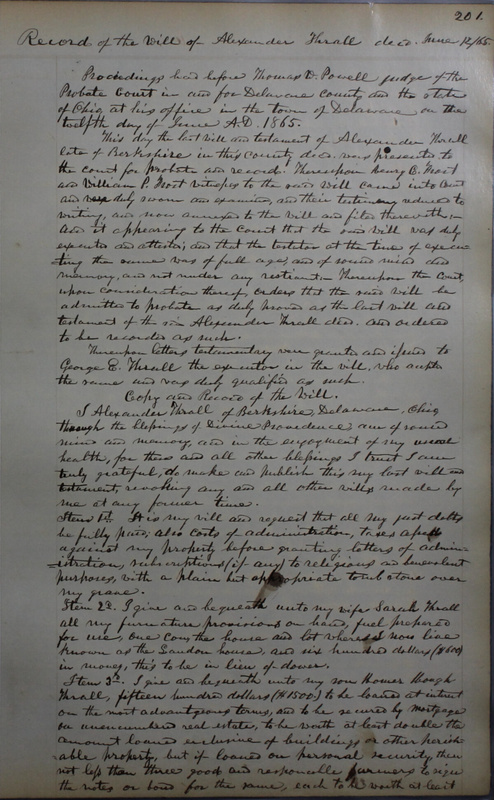 201
Record of the Will of Alexander Thrall decd. June 12/65
Proceedings had before Thomas W. Powell judge of the
Probate Court in and for Delaware County and the state
of Ohio at his office in the town of Delaware on the
twelfth day of June A.D. 1865.
This day the last will and testament of Alexander Thrall
late of Berkshire in this county decd. was presented to
the court for probate and record. Thereupon Henry C.
and William P. witnesses to the said Will came into Court
and were duly sworn and examined, and their testimony reduced to
writing, and now annexed to the will and filed therewith
And it appearing to the Court that the said will was duly
executed and attested, and that the testator at the time of execu-
ting the same was of full age, and of sound mind and
memory, and not under any restraint. Thereupon the Court
upon consideration thereof, orders that the said will be
admitted to probate as duly proved as the last will and
testament of the sd Alexander Thrall decd. and ordered
to be recorded as such.
Thereupon letters testamentary were granted and issued to
George E. Thrall the executor in the will, who
the same and was duly qualified as such.
Copy and Record of the Will.
I Alexander Thrall of Berkshire, Delaware, Ohio,
through the blessings of Divine Providence, am of sound
mind and memory, and in the enjoyment of my usual
health, for these and all other blessings I trust I am
truly grateful, do make and publish this my last will and
testament, revoking any and all other wills made by
me at any former time.
Item 1st. It is my will and request that all my just debts
be fully paid; also costs of administration, taxes
against my property before granting letters of admin-
istration, subscriptions (if any) to religious and benevolent
purposes, with a plain but appropriate tomb stone over
my grave.
Item 2d. I give and bequeath unto my wife Sarah Thrall
all my furniture provisions on hand, fuel prepared
for use, one cow, the house and lot where I now live
known as the Landon house, and six hundred dollars ($600)
in money, this to be in lieu of dower.
Item 3d. I give and bequeath unto my son Homer Hough
Thrall, fifteen hundred dollars ($1500.) to be loaned at interest
on the most advantageous terms, and to be secured by mortgage
on unencumbered real estate, to be worth at least double the
amount loaned exclusive of buildings or other perish-
able property, but if loaned on personal security, then
not less than three good and responsible farmers to sign
the notes or bond for the same, each to be worth at least